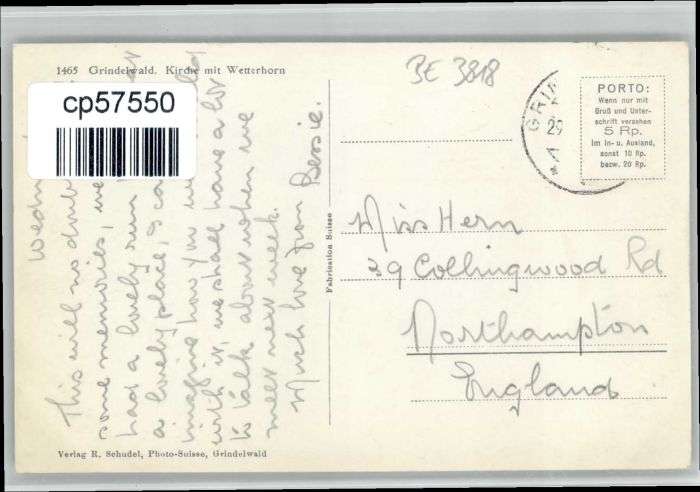 1465 Grindelwald. Kirche mit Wetterhorn
cp57550
BE 3818
PORTO:
Wenn nur mit
Gruß und Unter-
schrift versehen
5 Rp.
im In- u. Ausland,
sonst 10 Rp.
bezw. 20 Rp.
GRIN
29
Wedn
This will no doub
some memories, we
had a lovely run
a lovely place, I ca
imagine how you
with it, we shall have a lot
to talk about when we
meet next week.
Much love from Bessie.
Fabrication Suisse
Miss Hern
39 Collingwood Rd
Northampton
England
Verlag R. Schudel, Photo-Suisse, Grindelwald